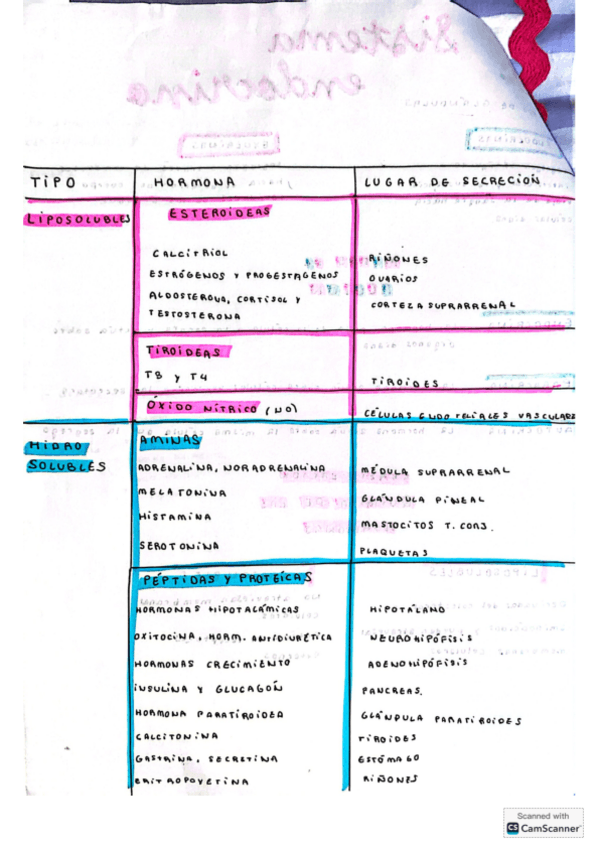 TIPO HORMONA LUGAR DE SECRECIÓN
LIPOSOLUBLES ESTEROIDEAS
CALCITRIOL RIÑONES
ESTRÓGENOS Y PROGESTAGENOS OVARIOS
ALDOSTERONA, CORTISOL Y CORTEZA SUPRARRENAL
TESTOSTERONA
TIROIDEAS
T3 Y T4 TIROIDES
ÓXIDO NÍTRICO (NO) CÉLULAS ENDOTELIALES VASCULARES
HIDRO AMINAS
SOLUBLES ADRENALINA, NORADRENALINA MÉDULA SUPRARRENAL
MELATONINA GLÁNDULA PINEAL
HISTAMINA MASTOCITOS T. CONJ.
SEROTONINA PLAQUETAS
PÉPTIDAS Y PROTEÍCAS
HORMONAS HIPOTALÁMICAS HIPOTÁLANO
OXITOCINA, HORM. ANTIDIURÉTICA NEUROHIPÓFISIS
HORMONAS CRECIMIENTO ADENOHIPÓFISIS
INSULINA Y GLUCAGÓN PANCREAS.
HORMONA PARATIROIDEA GLÁNDULA PARATIROIDES
CALCITONINA TIROIDES
GASTRINA, SECRETINA ESTÓMAGO
ERITROPOYETINA RIÑONES
Scanned with
CS CamScanner